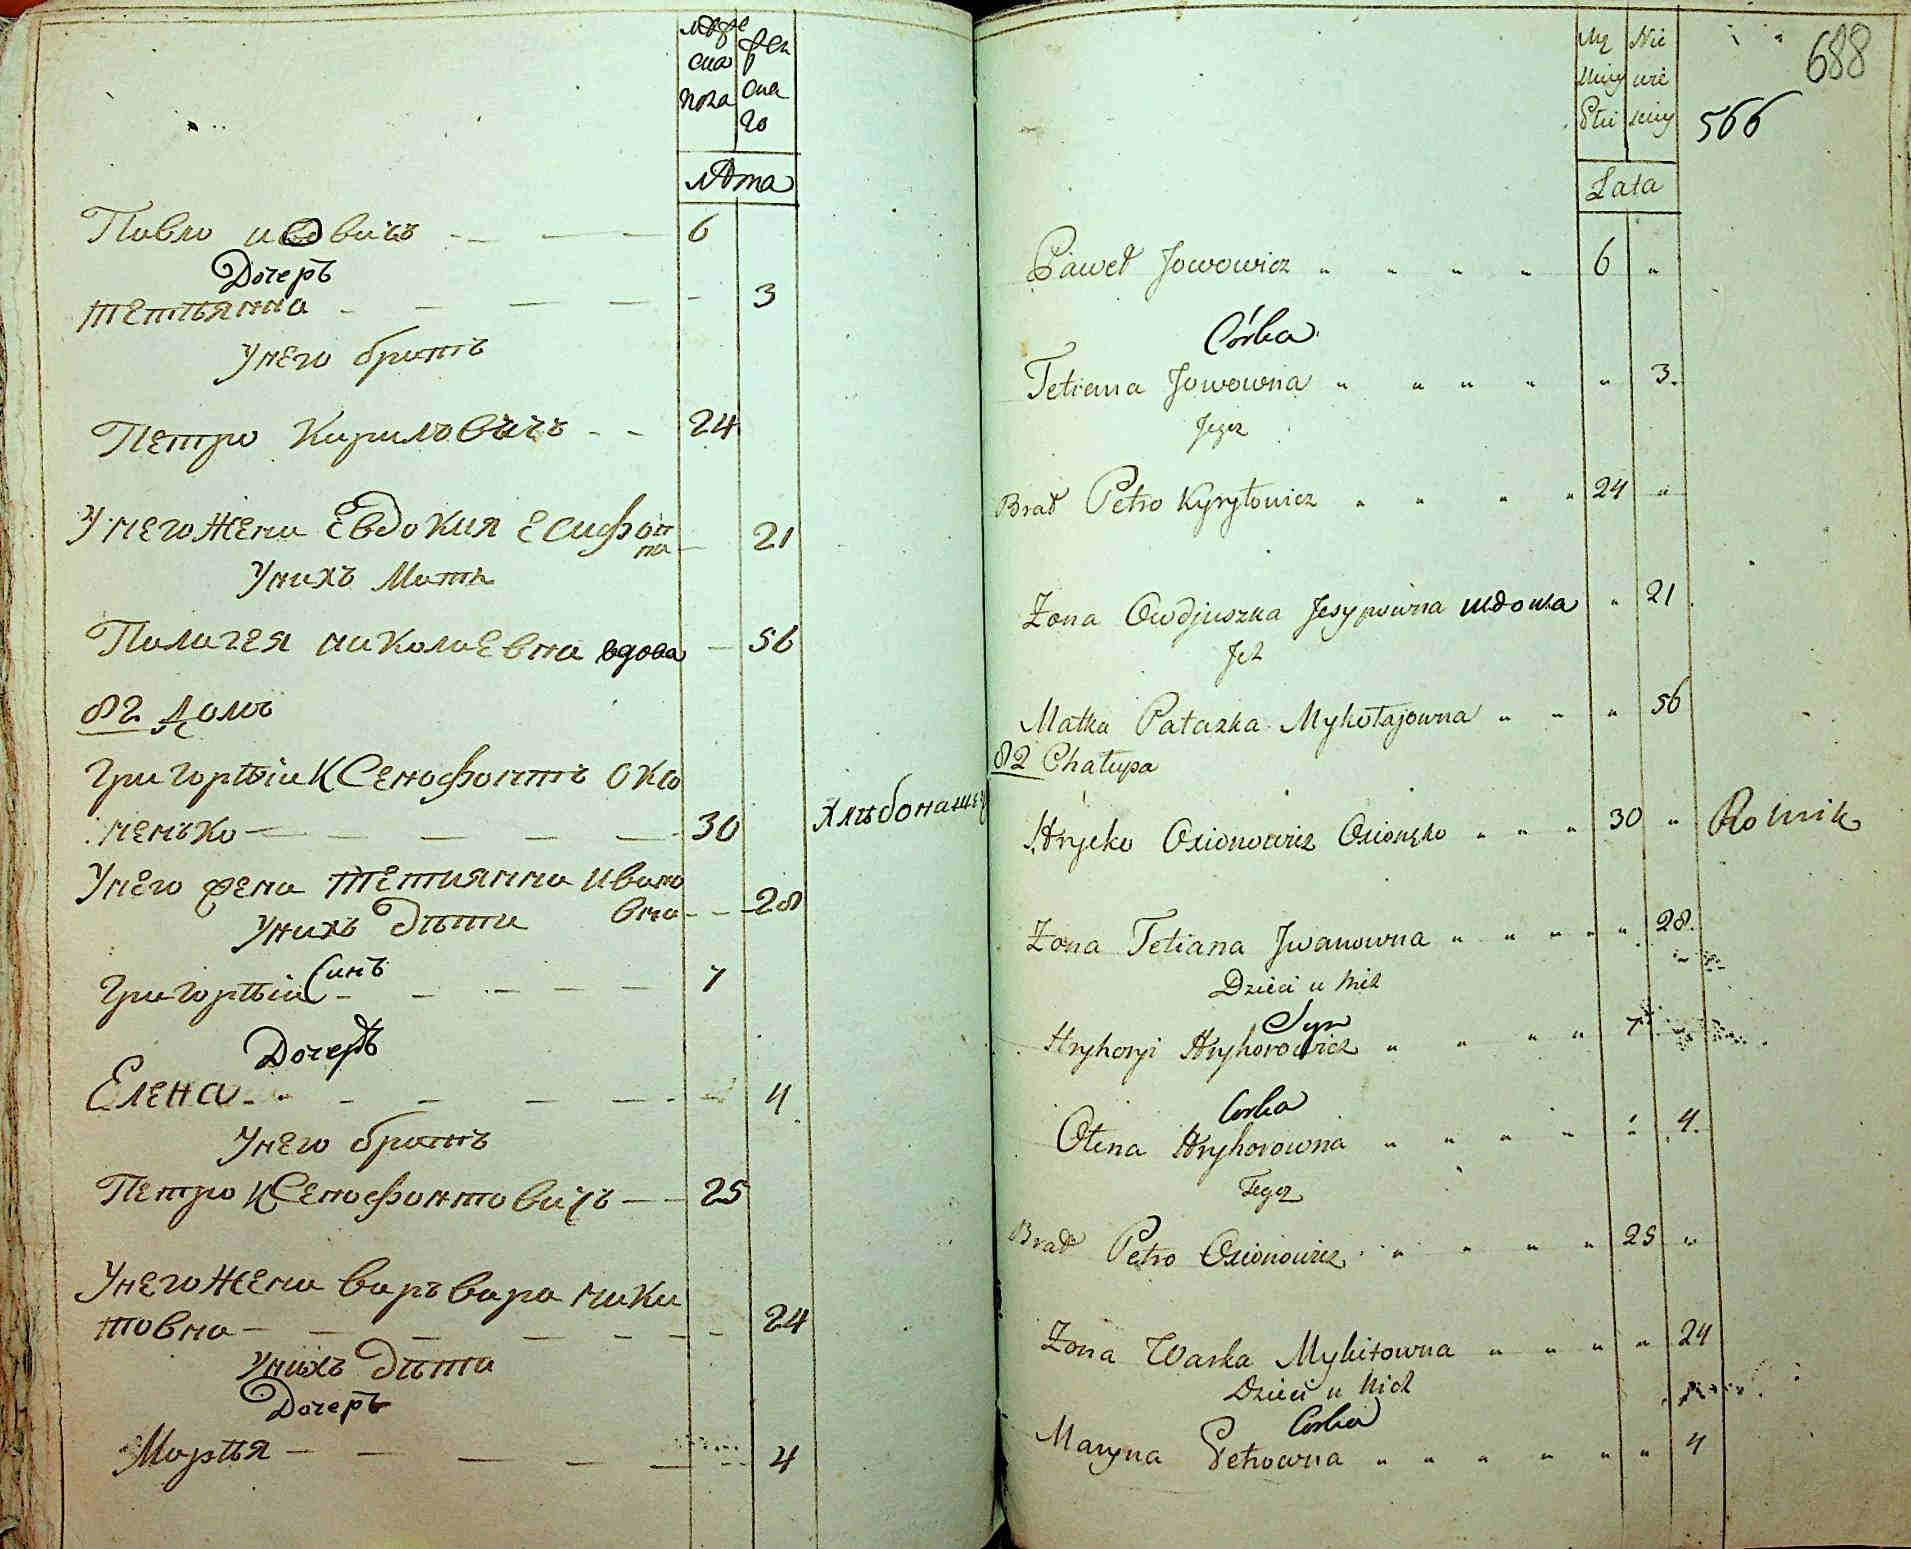 мужеска пола
женска го
лѣта
Павло иововичъ 6
Дочеръ
тетъянна 3
Унего братъ
Петро Кириловичъ 24
Унего жена Евдокия Есифов
на 21
Унихъ Мать
Палагея николаевна вдова 56
82 домъ
Григорѣи Ксенофонтъ Оксю
ненько 30 Хлѣбопашец
Унего жена тетиянна Ивано
вна 28
Унихъ дѣти
Григорѣи Синъ 7
Дочеръ
Елена 4
Унего братъ
Петро Ксенофонтовичъ 25
Унего жена варъвара мики
товна 24
Унихъ дѣти
Дочеръ
Марѣя 4
688
566
Lata
Paweł Jowowicz 6
Córka
Tetiana Jowowna 3.
Jego
Brat Petro Kyryłowicz 24
Żona Owdjuszka Jesypowna wdowa 21
Jch
Matka Patazka Mykołajowna 56
82 Chałupa
Hryćko Oxionowicz Oxionęko 30 Rolnik
Żona Tetiana Jwanowna 28.
Dzieci u Nich
Syn
Hryhoryi Hryhorowicz 7
Corka
Ołena Hryhorowna 4.
Jego
Brat Petro Oxionowicz 25
Żona Warka Mykitowna 24
Dzieci u Nich
Corka
Maryna Petrowna 4